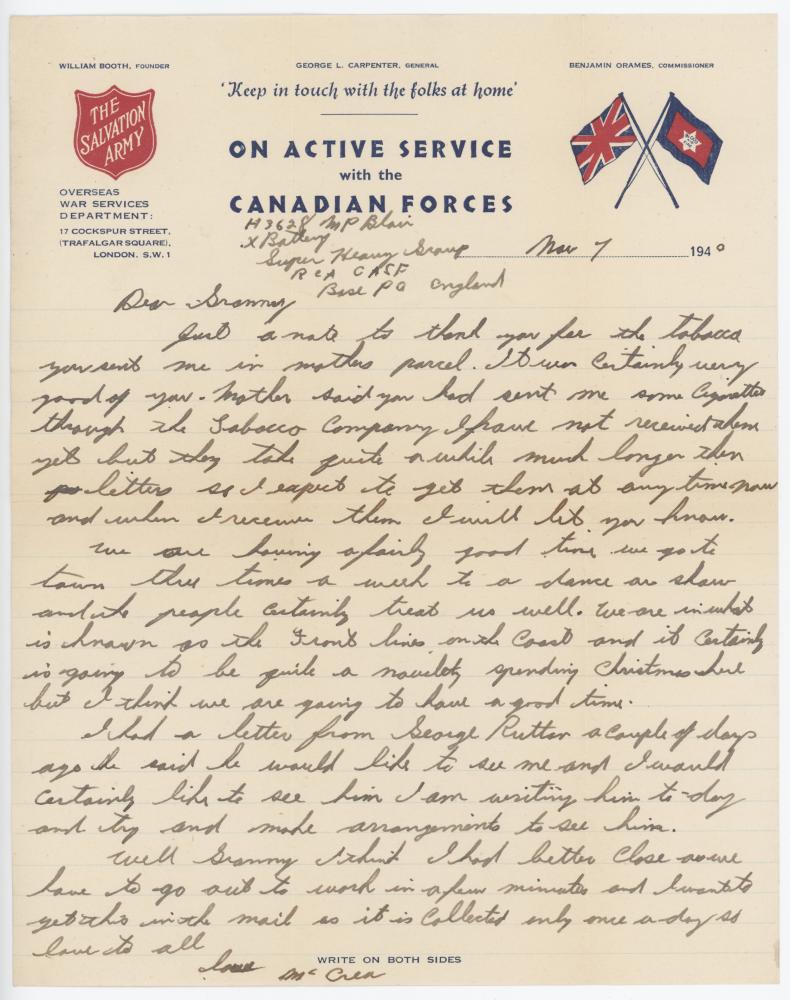 WILLIAM BOOTH, FOUNDER
GEORGE L. CARPENTER, GENERAL
BENJAMIN ORAMES, COMMISSIONER
'Keep in touch with the folks at home'
THE
SALVATION
ARMY
ON ACTIVE SERVICE
with the
CANADIAN FORCES
OVERSEAS
WAR SERVICES
DEPARTMENT:
17 COCKSPUR STREET,
(TRAFALGAR SQUARE),
LONDON. S.W. 1
H3628 McP Blair
X Battery
Super Heavy Group
RCA CASF
Base PO England
Nov 7 1940
Dear Granny
Just a note to thank you for the tobacco
you sent me in mothers parcel. It was Certainly very
good of you. Mother said you had sent me some Cigarettes
through the Tobacco Company I have not received them
yet but they take quite a while much longer then
letters so I expect to get them at any time now
and when I receive them I will let you know.
We are having a fairly good time we go to
town three times a week to a dance or show
and the people Certainly treat us well. We are in what
is known as the Front lines on the Coast and it Certainly
is going to be quite a novelety spending Christmas here
but I think we are going to have a good time.
I had a letter from George Ruttan a couple of days
ago he said he would like to see me and I would
Certainly like to see him I am writing him to-day
and try and make arrangements to see him.
Well Granny I think I had better Close as we
have to go out to work in a few minutes and I want to
get this in the mail as it is Collected only once a day so
love to all
love
McCrea
WRITE ON BOTH SIDES